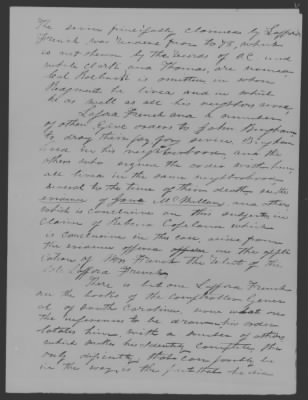 The service principally claimed by Laffra
French was services prior to 78, which
is not shown by the records of S.C. and
while Clark and Thomas, are
Col Roebuck is omitted in whose
Regiment he lived and in which
he as well as all his neighbors served
Lafra French and a number
of others give orders to John Bingham
to draw their pay for service. Bingham
lived in his neighborhood and the
others who signed the orders with him,
all lived in the same neighborhood,
to the time of their death, as the
evidence of Jane McMullan, and others
which is conclusive on this subject, in
claim of Rebecca Copeland which
is conclusive in this case, arises from
the evidence offered in the appli
cation of French the relict of the
Laffra French
There is but one Laffra French
on the books of the Comptroller Gener
al of South Carolina, now
the references to be drawn his order
locates him with a number of others
which makes his identity complete, the
only difficulty that can possibly be
in the way, is the fact that he die